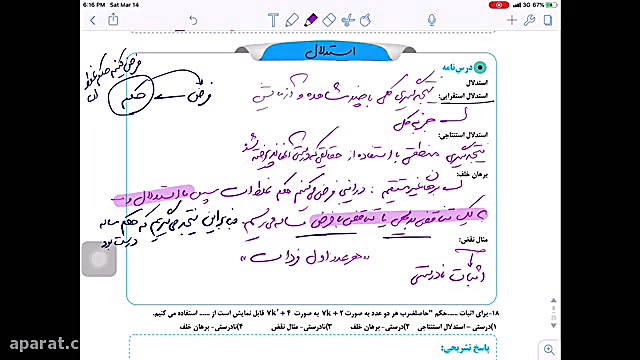 6:16 PM Sat Mar 14
3G 67%
استدلال
درس‌نامه
استدلال
استدلال استقرایی: نتیجه‌گیری کلی با چند مشاهده و آزمایش
جزء به کل
فرض
حکم
فرض کنیم حکم غلط
استدلال استنتاجی:
نتیجه‌گیری منطقی با استفاده از حقایقی که درستی آنها پذیرفته شد
برهان خلف:
برهان غیر مستقیم: در این فرض می‌کنیم حکم غلط است سپس با استدلال
به یک تناقض بدیهی یا تناقض با فرض مساله می‌رسیم بنابراین نتیجه می‌گیریم که حکم مساله
درست بود
مثال نقض:
اثبات نادرستی
«هر عدد اول فرد است»
۱۸- برای اثبات ...... حکم "حاصلضرب هر دو عدد به صورت 7k + ۲ به صورت 7k′ + ۴ قابل نمایش است از ...... استفاده می کنیم.
۱) درستی - استدلال استنتاجی ۲) درستی- برهان خلف ۳) نادرستی- مثال نقض ۴) نادرستی- برهان خلف
پاسخ تشریحی:
8
25
aparat.c